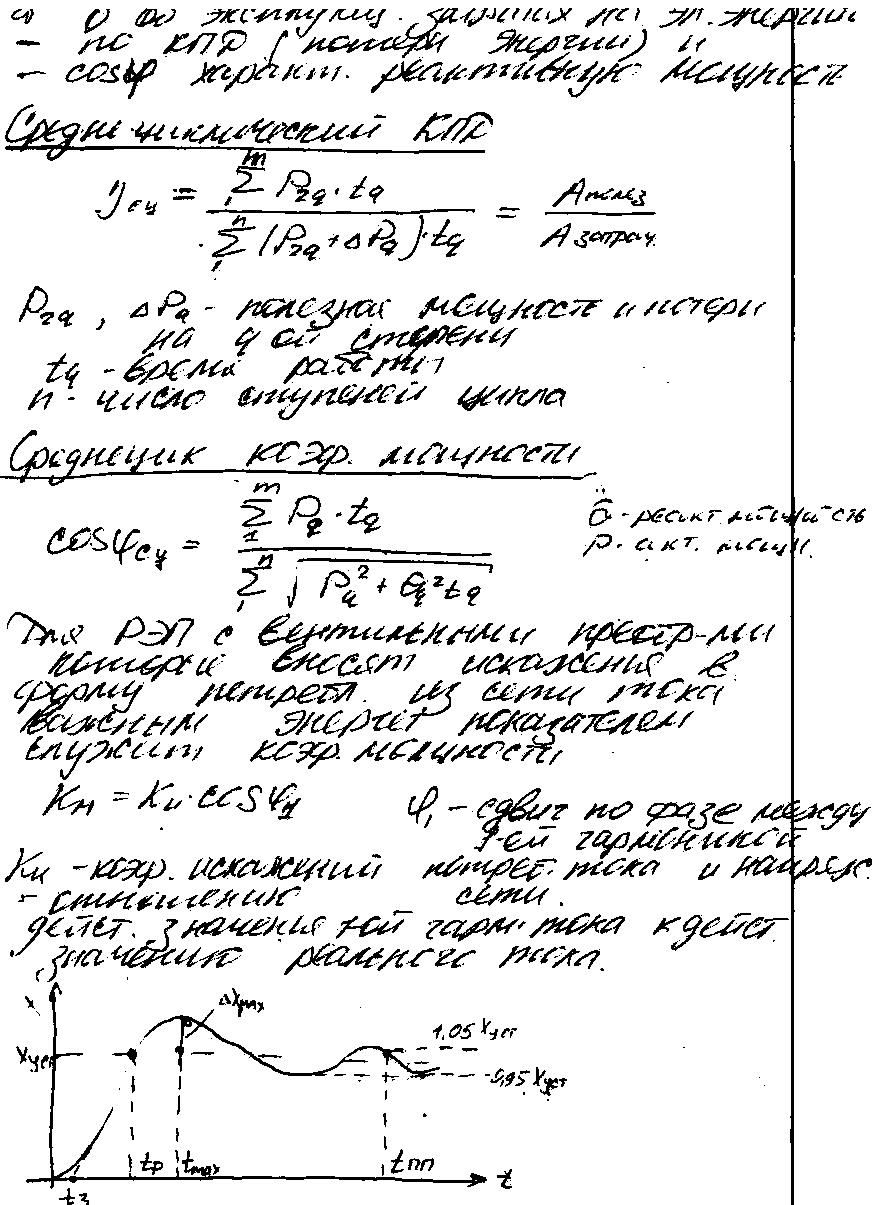 эксплуатац. затрат на эл. энергии
- по КПД (потери энергии) и
- cosφ характ. реактивную мощность
Среднециклический КПД
ηсц = Σ₁ᵐ P₂q · tq / Σ₁ⁿ (P₂q + ΔPq) · tq = Aполез / Aзатрач
P₂q, ΔPq - полезная мощность и потери
на q ой ступени
tq - время работы
n - число ступеней цикла
Среднецик коэф. мощности
cosφсц = Σ₁ᵐ Pq · tq / Σ₁ⁿ √(Pq² + Qq² tq)
Q - реакт мощность
P - акт. мощн.
Для РЭП с вентильными преобр-ми
которые вносят искажения в
форму потребл. из сети тока
важным энергет показателем
служит коэф. мощности
Kм = Kи · cosφ₁
φ₁ - сдвиг по фазе между
1-ей гармоникой
Kи - коэф. искажений потреб. тока и напряж.
- отношению сети.
дейст. значения 1ой гарм. тока к дейст.
значению реального тока.
x
Δxmax
xуст
1,05 xуст
0,95 xуст
tр
tmax
tпп
t
tз